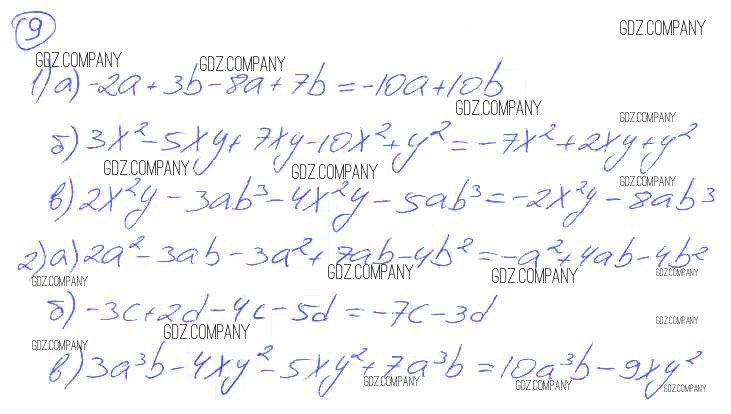 9
GDZ.COMPANY
GDZ.COMPANY GDZ.COMPANY
1) а) -2a + 3b - 8a + 7b = -10a + 10b
GDZ.COMPANY
GDZ.COMPANY
б) 3x² - 5xy + 7xy - 10x² + y² = -7x² + 2xy + y²
GDZ.COMPANY GDZ.COMPANY GDZ.COMPANY
в) 2x²y - 3ab³ - 4x²y - 5ab³ = -2x²y - 8ab³
2) а) 2a² - 3ab - 3a² + 7ab - 4b² = -a² + 4ab - 4b²
GDZ.COMPANY GDZ.COMPANY GDZ.COMPANY GDZ.COMPANY
б) -3c + 2d - 4c - 5d = -7c - 3d
GDZ.COMPANY GDZ.COMPANY
GDZ.COMPANY
в) 3a³b - 4xy² - 5xy² + 7a³b = 10a³b - 9xy²
GDZ.COMPANY GDZ.COMPANY GDZ.COMPANY